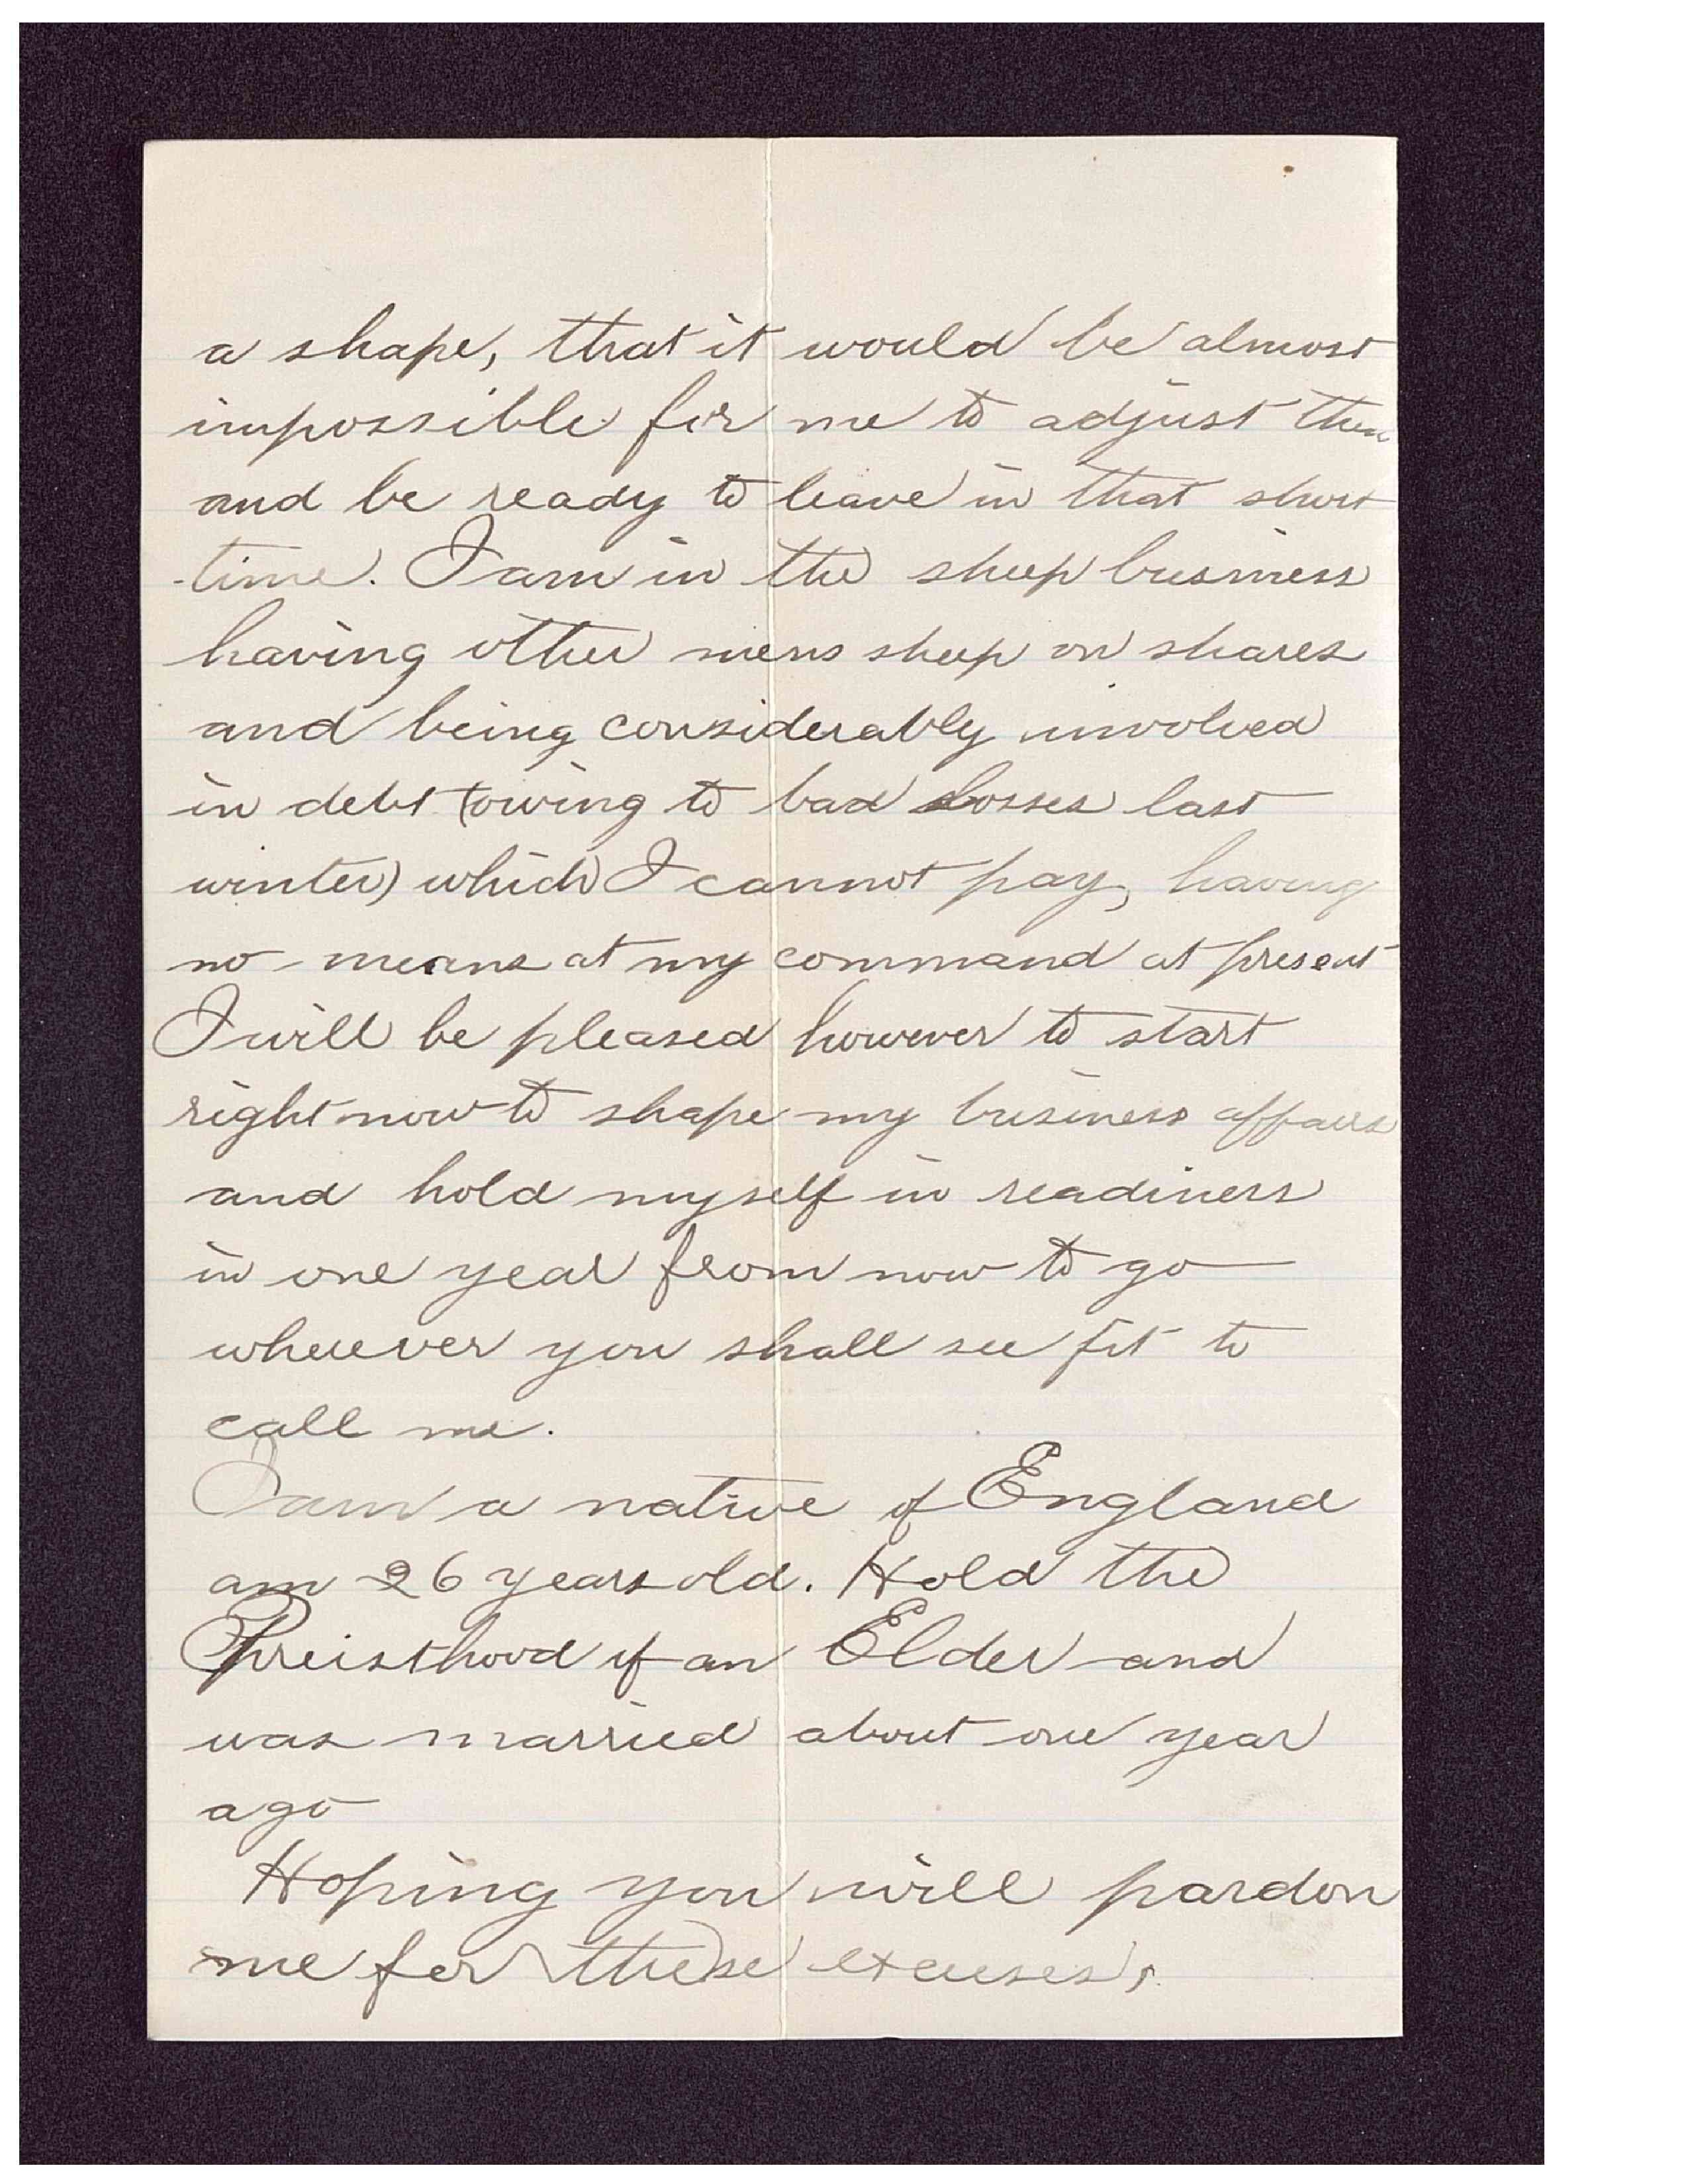 a shape, that it would be almost
impossible for me to adjust them
and be ready to leave in that short
time. I am in the sheep business
having other mens sheep on shares
and being considerably involved
in debt (owing to bad losses last
winter) which I cannot pay, having
no means at my command at present
I will be pleased however to start
right now to shape my business affairs
and hold myself in readiness
in one year from now to go
wherever you shall see fit to
call me.
I am a native of England
am 26 years old. Hold the
Preisthood of an Elder and
was married about one year
ago
Hoping you will pardon
me for these excuses,